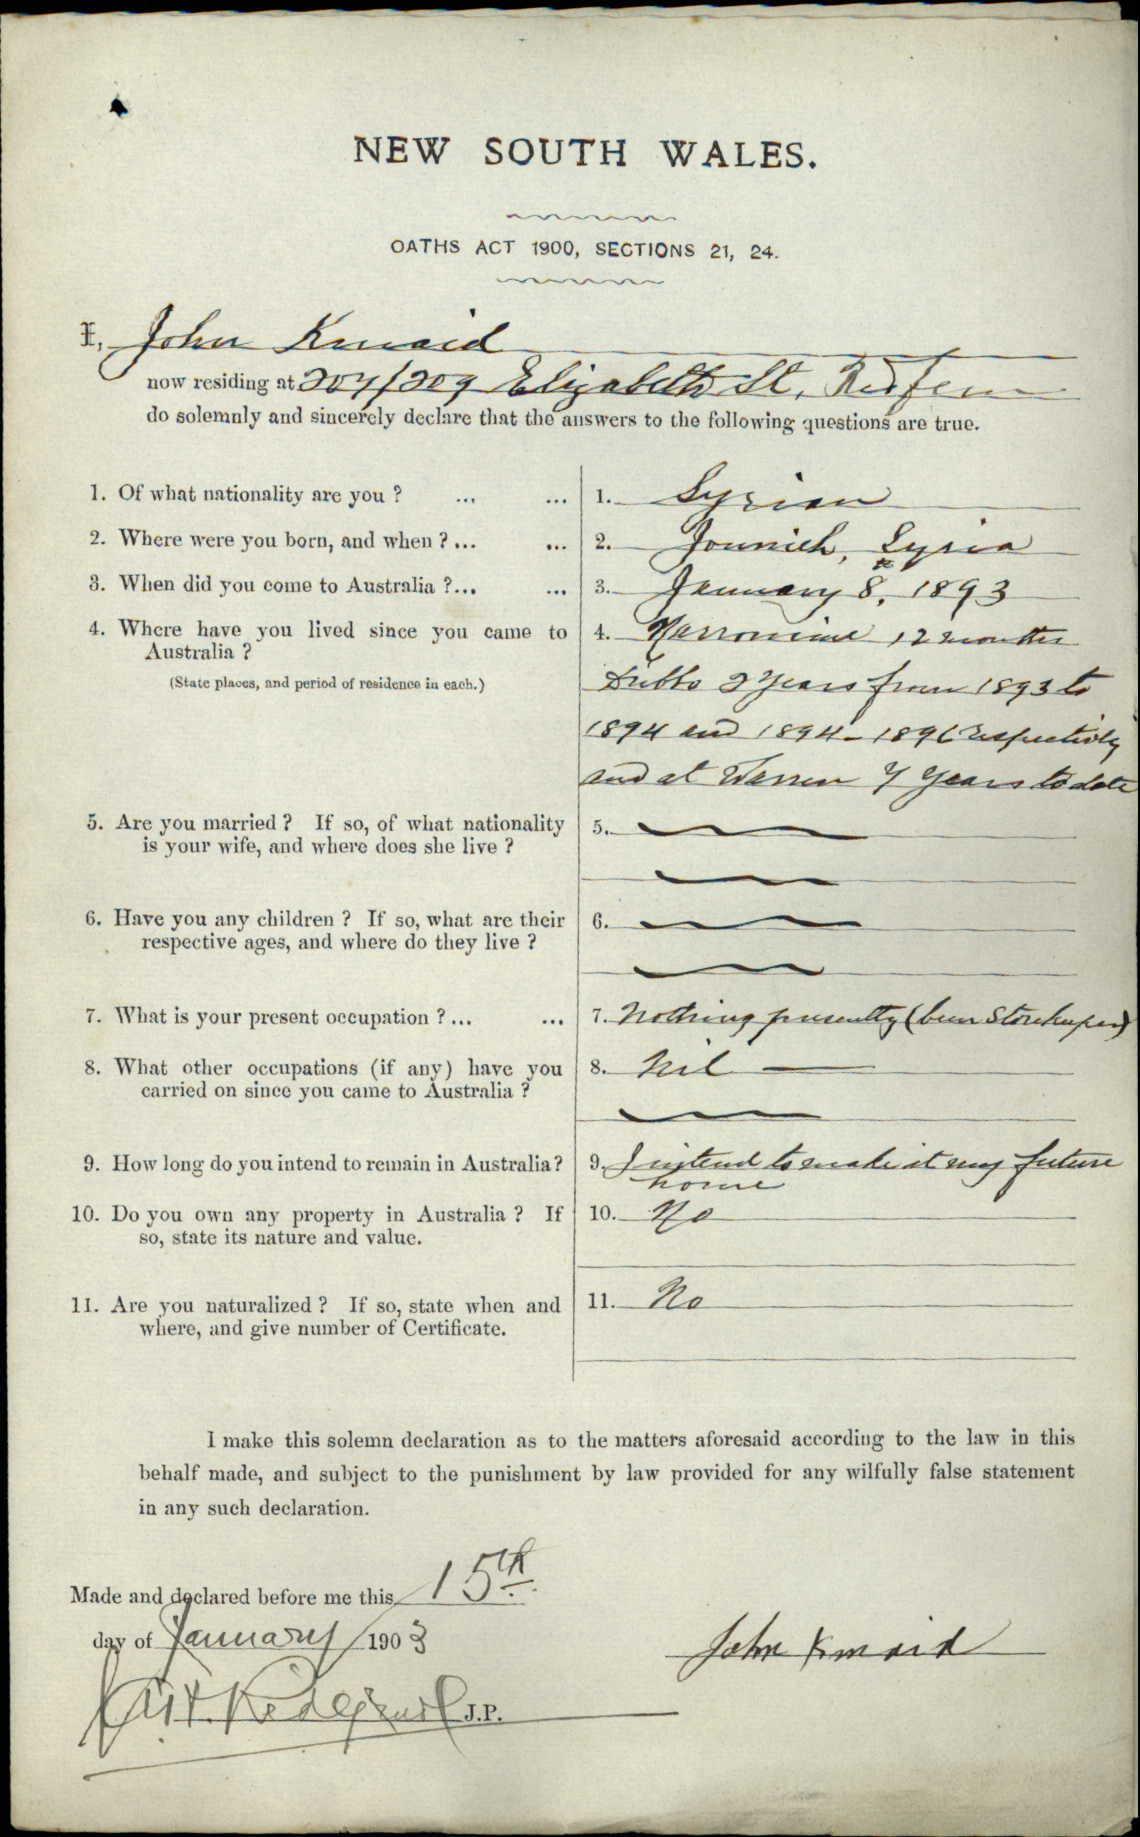 NEW SOUTH WALES.
OATHS ACT 1900, SECTIONS 21, 24.
I, John Kmaid
now residing at 207/209 Elizabeth St, Redfern
do solemnly and sincerely declare that the answers to the following questions are true.
1. Of what nationality are you ? ... ... 1. Syrian
2. Where were you born, and when ? ... ... 2. Jounieh, Syria
3. When did you come to Australia ?... ... 3. January 8th, 1893
4. Where have you lived since you came to 4. Narromine 12 months
Australia ?
(State places, and period of residence in each.) Dubbo 2 Years from 1893 to
1894 and 1894 - 1896 respectively
and at Warren 7 Years to date
5. Are you married ? If so, of what nationality 5.
is your wife, and where does she live ?
6. Have you any children ? If so, what are their 6.
respective ages, and where do they live ?
7. What is your present occupation ? ... ... 7. Nothing presently (been Storekeeper)
8. What other occupations (if any) have you 8. Nil
carried on since you came to Australia ?
9. How long do you intend to remain in Australia? 9. I intend to make it my future
home
10. Do you own any property in Australia ? If 10. No
so, state its nature and value.
11. Are you naturalized ? If so, state when and 11. No
where, and give number of Certificate.
I make this solemn declaration as to the matters aforesaid according to the law in this
behalf made, and subject to the punishment by law provided for any wilfully false statement
in any such declaration.
Made and declared before me this 15th
day of January 1903
John Kmaid
J.P.